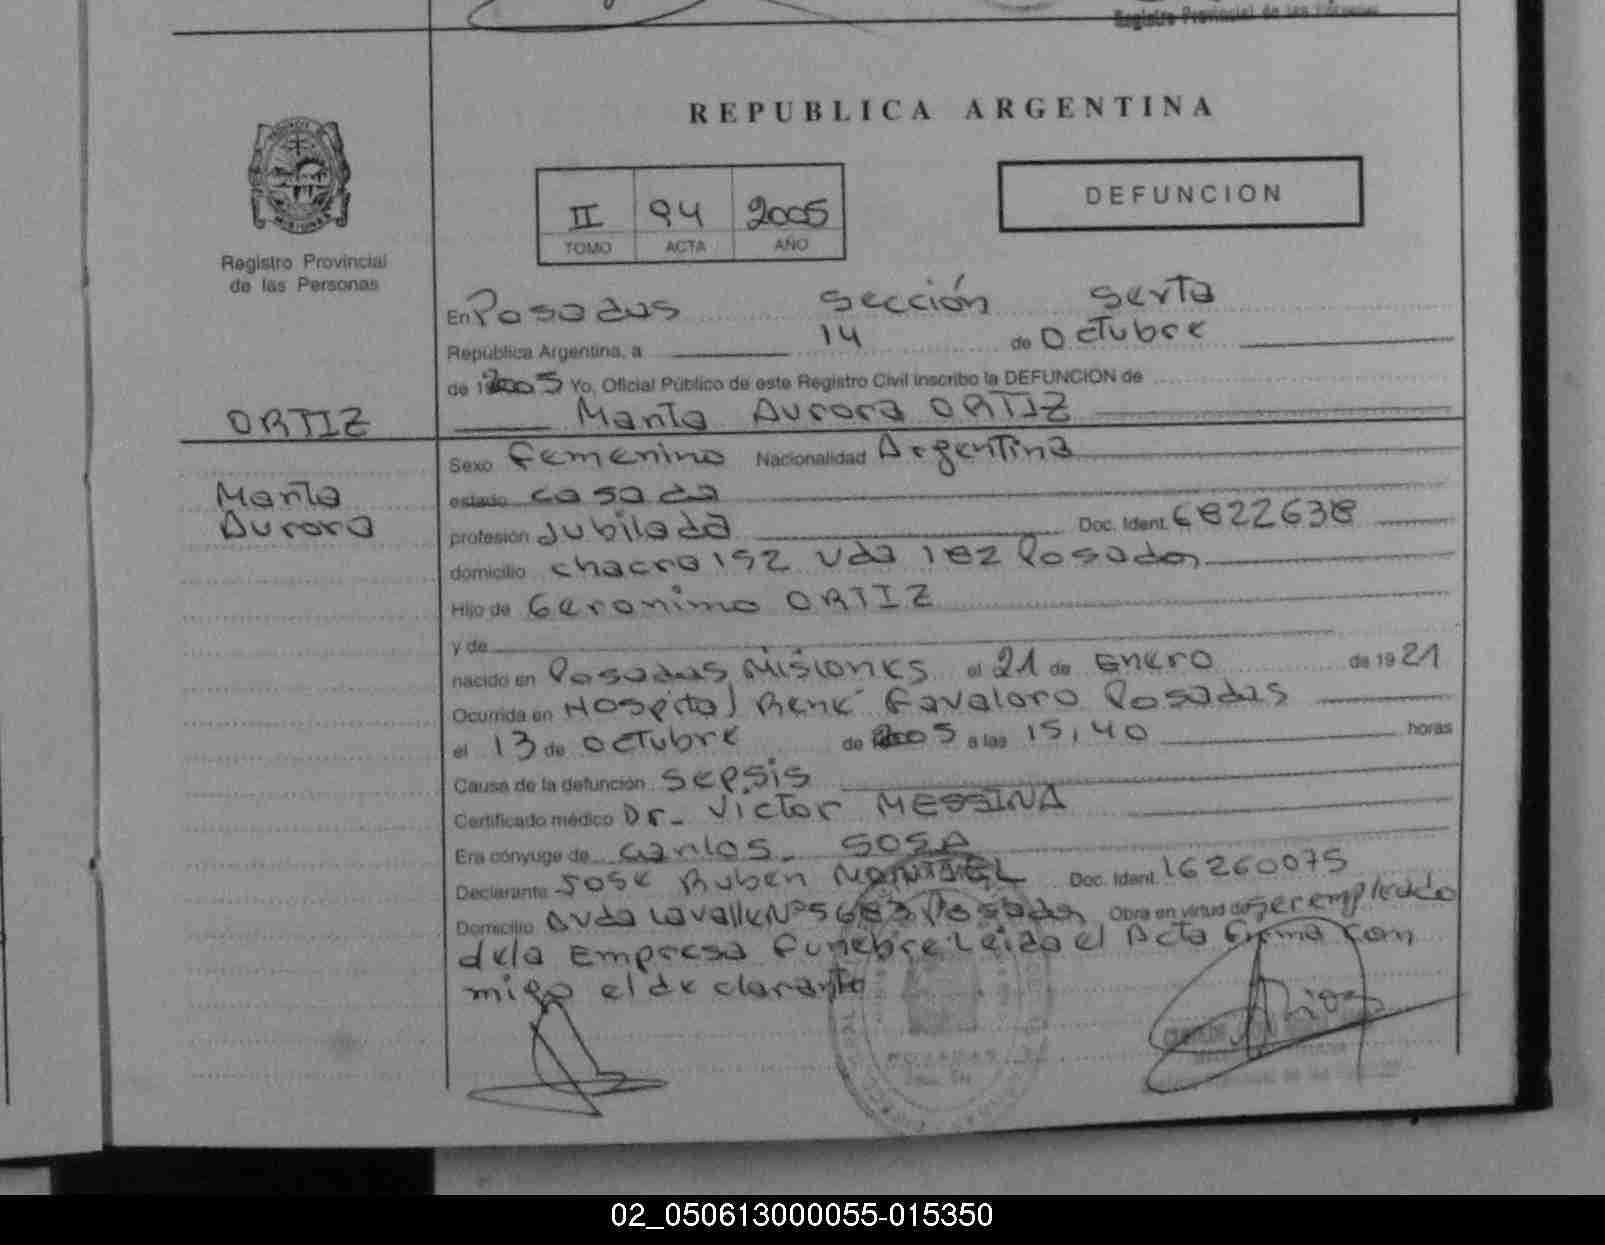 Registro Provincial de las Personas
REPUBLICA ARGENTINA
DEFUNCION
II 94 2005
TOMO ACTA AÑO
Registro Provincial
de las Personas
En Posadas Sección Serta
República Argentina, a 14 de Octubre
de 192005 Yo, Oficial Público de este Registro Civil inscribo la DEFUNCION de
ORTIZ
Marta Aurora ORTIZ
Marta
Aurora
Sexo Femenino Nacionalidad Argentina
estado casada
profesión Jubilada Doc. Ident. 6822638
domicilio chacra 152 Vda 182 Posadas
Hijo de Geronimo ORTIZ
y de
nacido en Posadas Misiones el 21 de Enero de 1921
Ocurrida en Hospital René Favaloro Posadas
el 13 de Octubre de 2005 a las 15,40 horas
Causa de la defunción Sepsis
Certificado médico Dr. Victor MESSINA
Era cónyuge de Carlos SOSA
Declarante Jose Ruben Doc. Ident. 16260075
Domicilio Avda Lavalle Nº 5683 Posadas Obra en virtud de ser empleado
dela Empresa Funebre. Leida el Acta firma con
migo el declarante
POSADAS
02_050613000055-015350